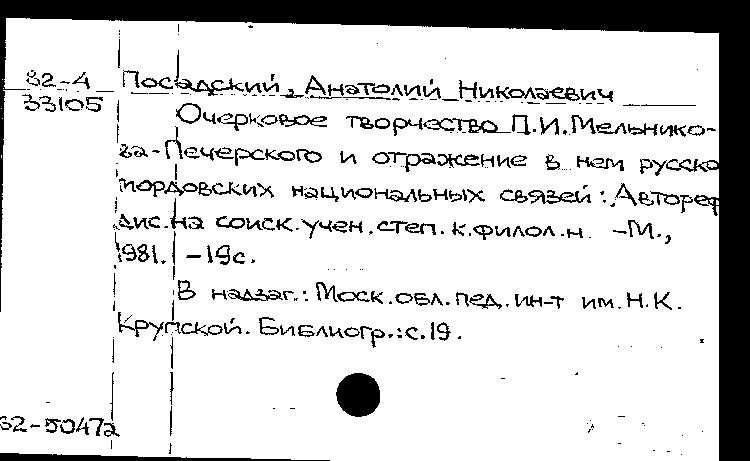 82-4 Посадский, Анатолий Николаевич
33105
Очерковое творчество П.И.Мельнико-
ва-Печерского и отражение в нем русско
мордовских национальных связей: Автореф
дис.на соиск.учен.степ.к.филол.н. -М.,
1981. -19с.
В надзаг.: Моск.обл.пед.ин-т им.Н.К.
Крупской. Библиогр.:с.19.
82-50472